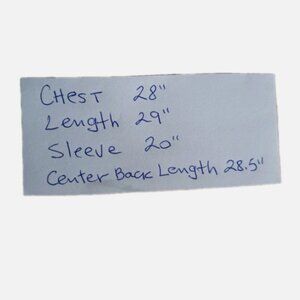 CHEST 28"
Length 29"
Sleeve 20"
Center Back Length 28.5"